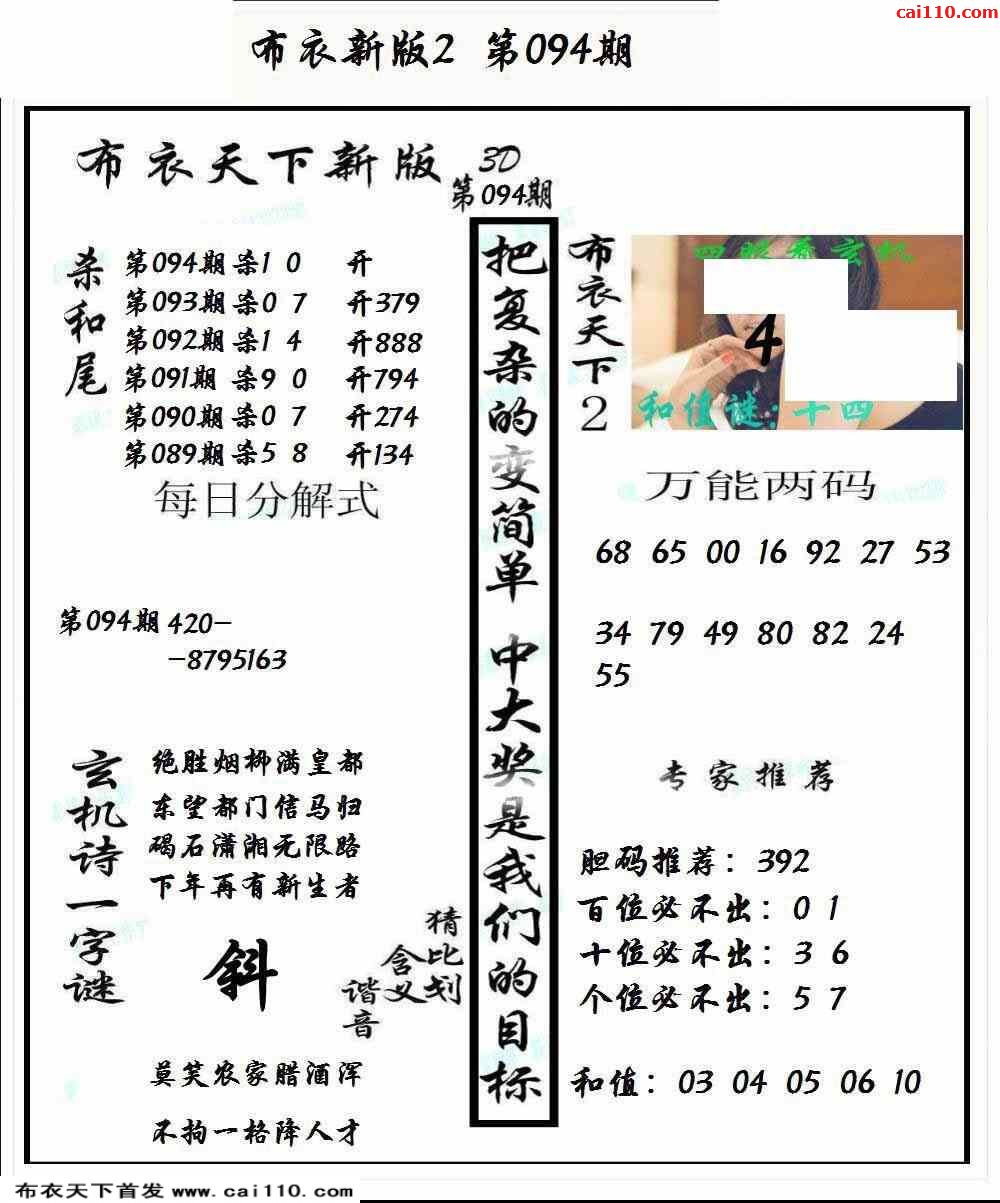 cai110.com
布衣新版2 第094期
布衣天下新版 3D
第094期
杀和尾
第094期 杀1 0 开
第093期 杀0 7 开379
第092期 杀1 4 开888
第091期 杀9 0 开794
第090期 杀0 7 开274
第089期 杀5 8 开134
每日分解式
第094期 420-
-8795163
玄机诗一字谜
绝胜烟柳满皇都
东望都门信马归
碣石潇湘无限路
下年再有新生者
斜
猜比划
含义
谐音
莫笑农家腊酒浑
不拘一格降人才
把复杂的变简单 中大奖是我们的目标
布衣天下2
四眼看玄机
4
和值谜:十四
万能两码
68 65 00 16 92 27 53
34 79 49 80 82 24
55
专家推荐
胆码推荐：392
百位必不出：0 1
十位必不出：3 6
个位必不出：5 7
和值：03 04 05 06 10
布衣天下首发 www.cai110.com